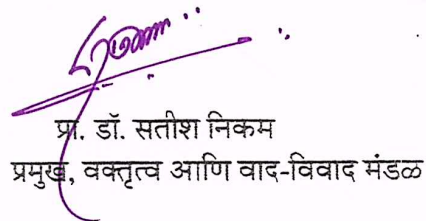 प्रा. डॉ. सतीश निकम
प्रमुख, वक्तृत्व आणि वाद-विवाद मंडळ